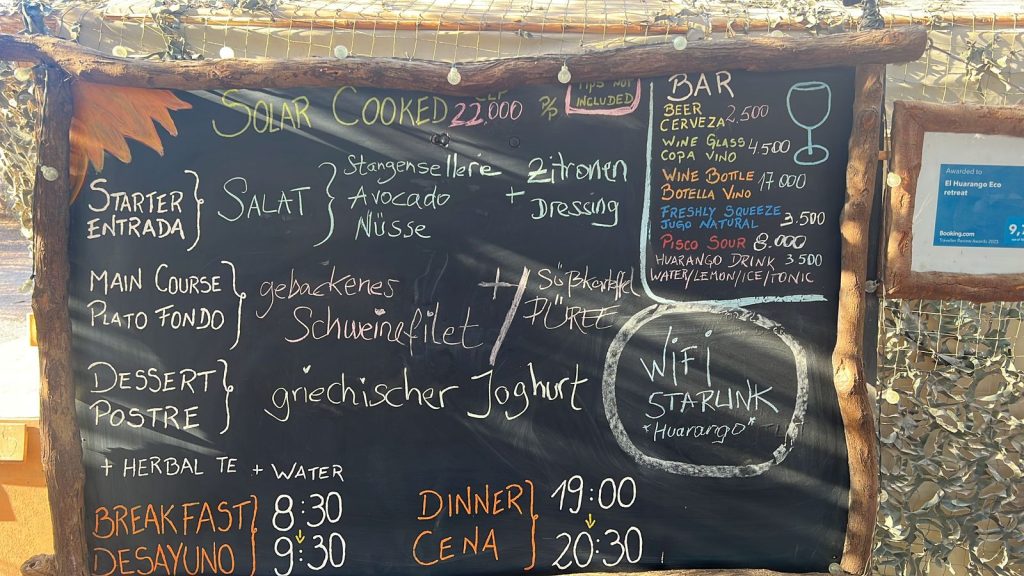 SOLAR COOKED CLP 22.000 P/P
TIPS NOT
INCLUDED
STARTER
ENTRADA
SALAT
Stangensellerie
Avocado
Nüsse
+ Zitronen
Dressing
MAIN COURSE
PLATO FONDO
gebackenes
Schweinefilet
+ Süßkartoffel
PÜREE
DESSERT
POSTRE
griechischer Joghurt
+ HERBAL TE + WATER
BREAKFAST
DESAYUNO
8:30
9:30
DINNER
CENA
19:00
20:30
BAR
BEER
CERVEZA 2.500
WINE GLASS
COPA VINO 4.500
WINE BOTLE
BOTELLA VINO 17 000
FRESHLY SQUEEZE
JUGO NATURAL 3.500
PISCO SOUR 8.000
HUARANGO DRINK 3 500
WATER/LEMON/ICE/TONIC
WiFi
STARLINK
"Huarango"
Awarded to
El Huarango Eco
retreat
Booking.com
Traveller Review Awards 2023